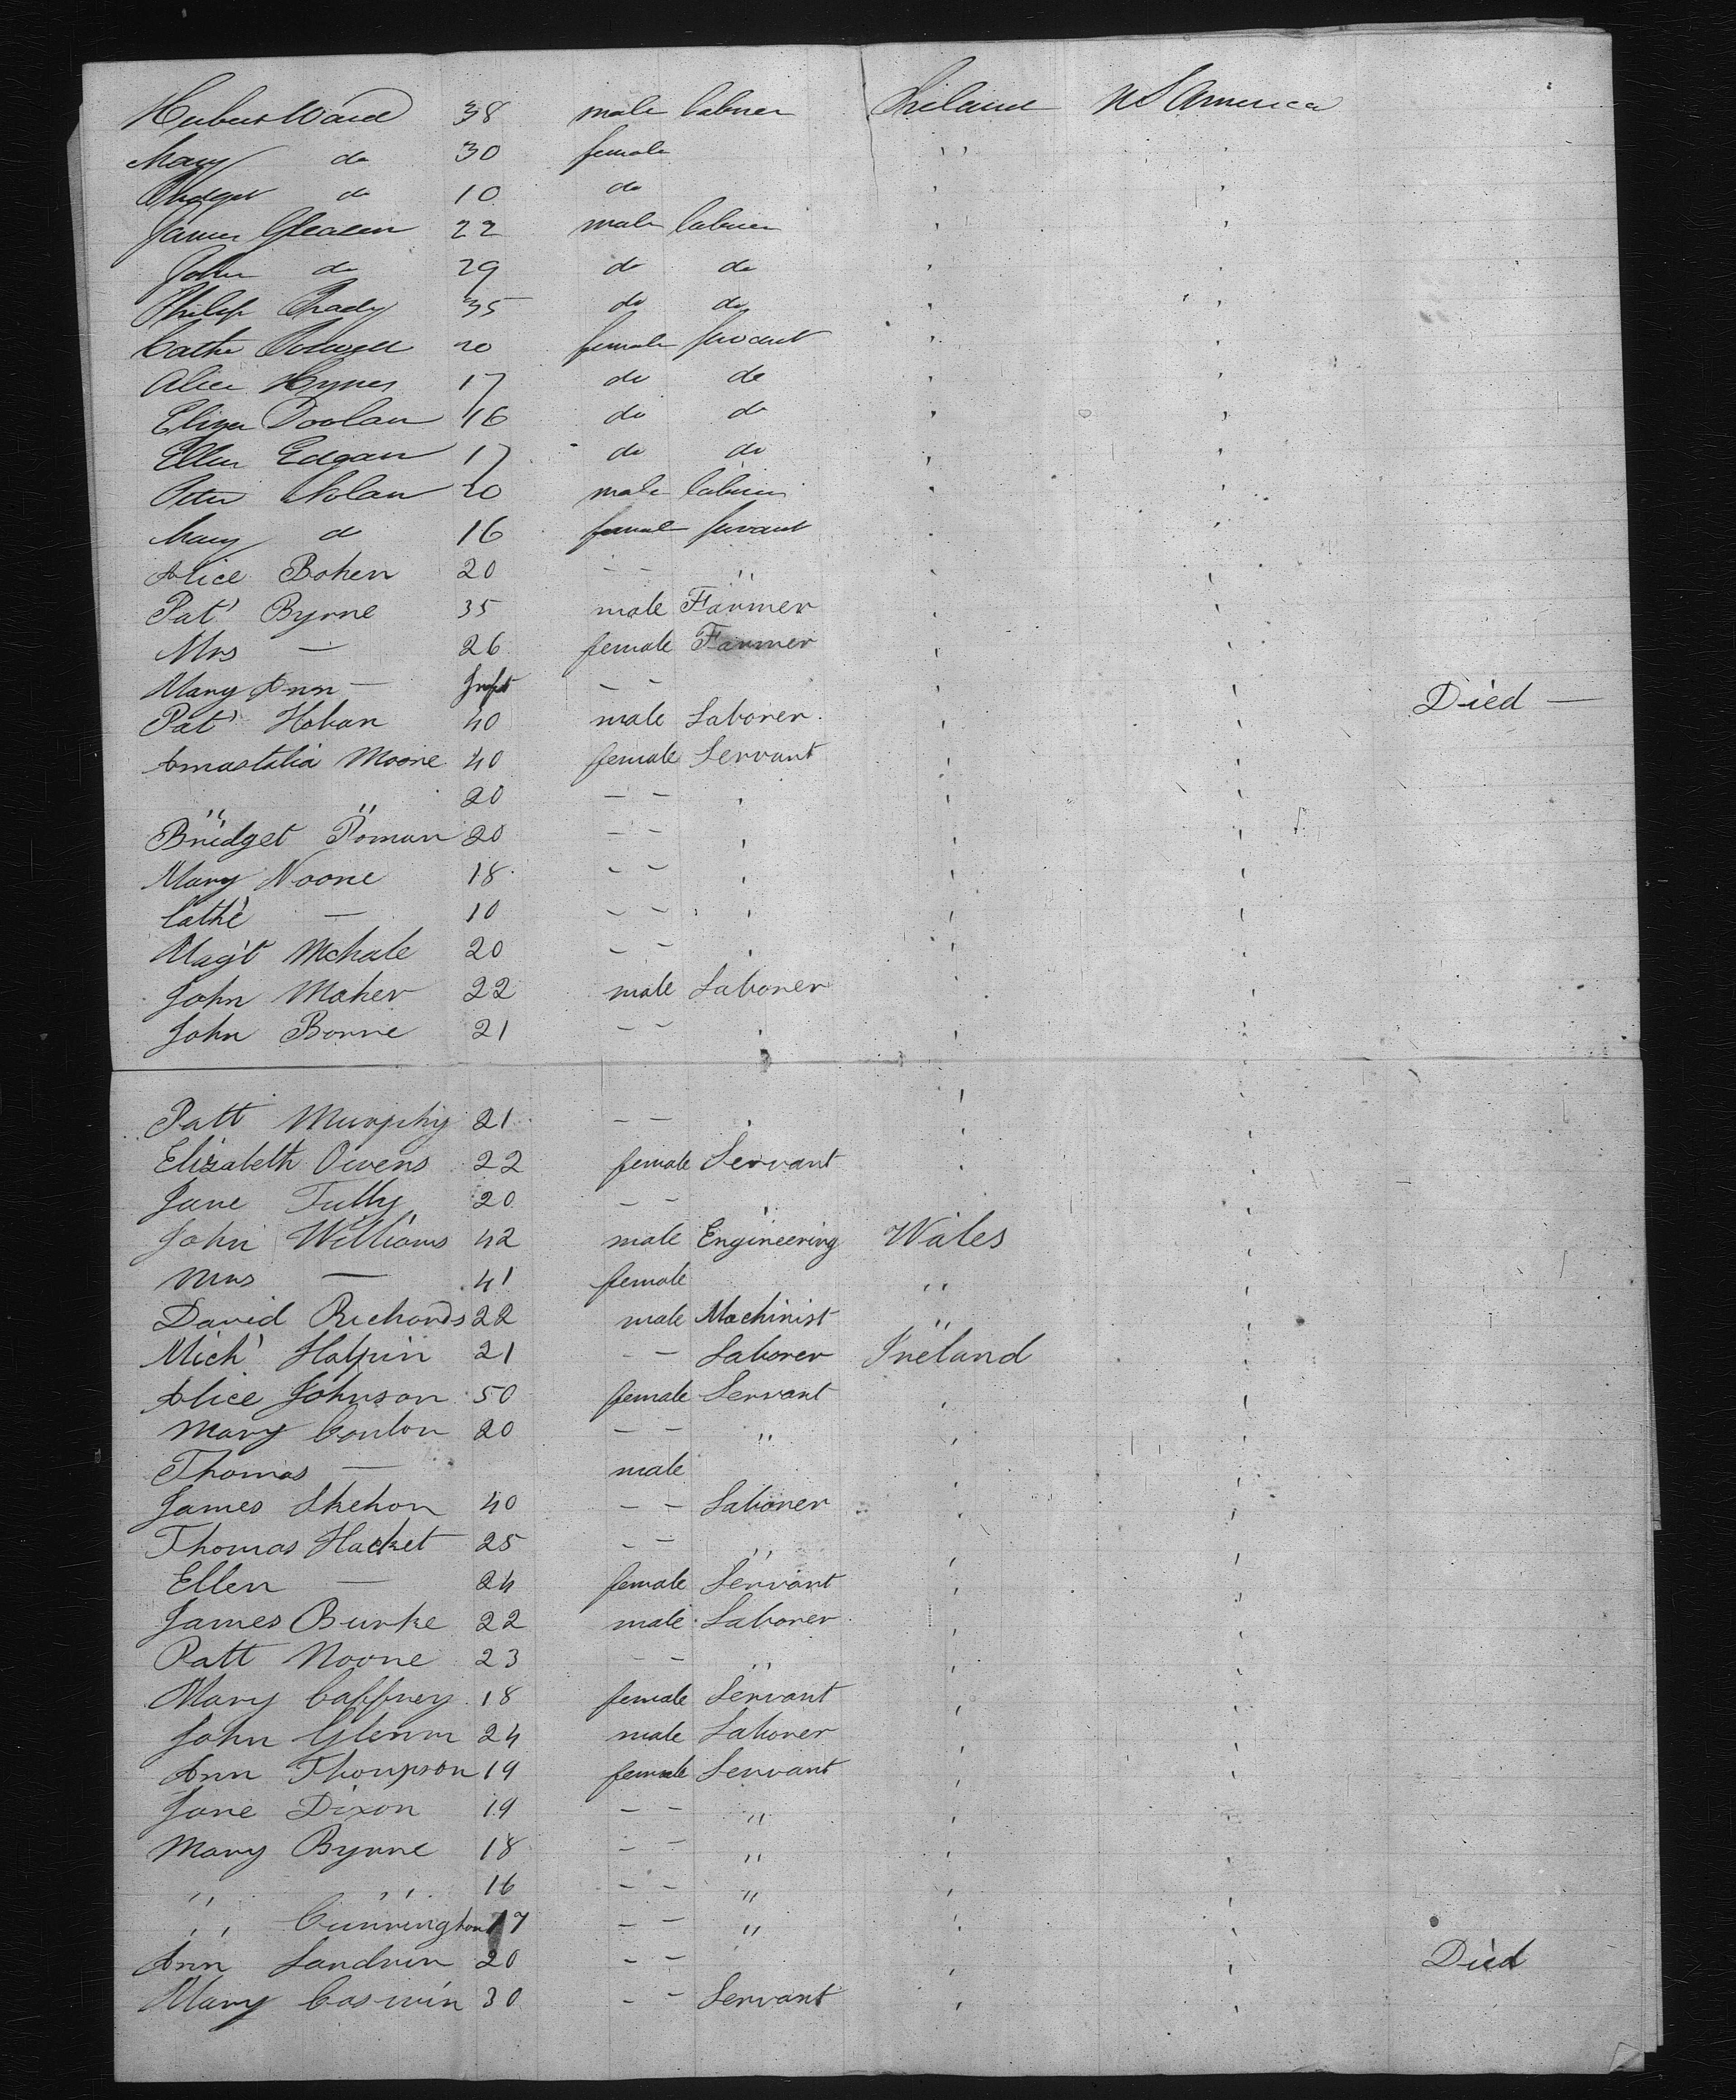 Hubert Ward 38 male labuer Irelaund U S America
Mary do 30 female " '
Bridget do 10 do ' '
James Gleason 22 male labuer ' '
John do 29 do do ' '
Philip Brady 35 do do ' '
Cathe 20 female servant ' '
Alice Hynes 17 do do ' '
Eliza Doolan 16 do do ' '
Ellen Edgan 17 do do ' '
Peter Nolan 20 male labuer ' '
Mary d 16 female servant ' '
Alice Boken 20 - - " ' '
Pat' Byrne 35 male Farmer ' '
Mrs — 26 female Farmer ' '
Mary Ann — Inft - - ' Died —
Pat' Hoban 40 male Laborer ' '
Anastatia Moone 40 female Servant ' '
" " 20 - - ' ' '
Bridget Poman 20 - - ' ' '
Mary Noone 18 - - ' ' '
Cathe — 10 - - ' ' '
Mag't McHale 20 - - ' ' '
John Maher 22 male Laborer ' '
John Bonne 21 - - ' ' '
Patt Murphy 21 - - ' ' '
Elizabeth Owens 22 female Servant ' '
Jane Tully 20 - - ' ' '
John Williams 42 male Engineering Wales '
Mrs — 41 female " '
David Richards 22 male Machinist " '
Mich' Halpin 21 - - Laborer Ireland '
Alice Johnson 50 female Servant ' '
Mary Conlon 20 - - " ' '
Thomas — male ' '
James Skehon 40 - - Laborer ' '
Thomas Hacket 25 - - " ' '
Ellen — 24 female Servant ' '
James Burke 22 male Laborer ' '
Patt Noone 23 - - " ' '
Mary Caffney 18 female Servant ' '
John Glenn 24 male Laborer ' '
Ann Thompson 19 female Servant ' '
Jane Dixon 19 - - " ' '
Mary Byrne 18 - - " ' '
" " 16 - - " ' '
" Cunningham 17 - - " ' '
Ann Landrin 20 - - ' ' Died
Mary Coswin 30 - - Servant ' '